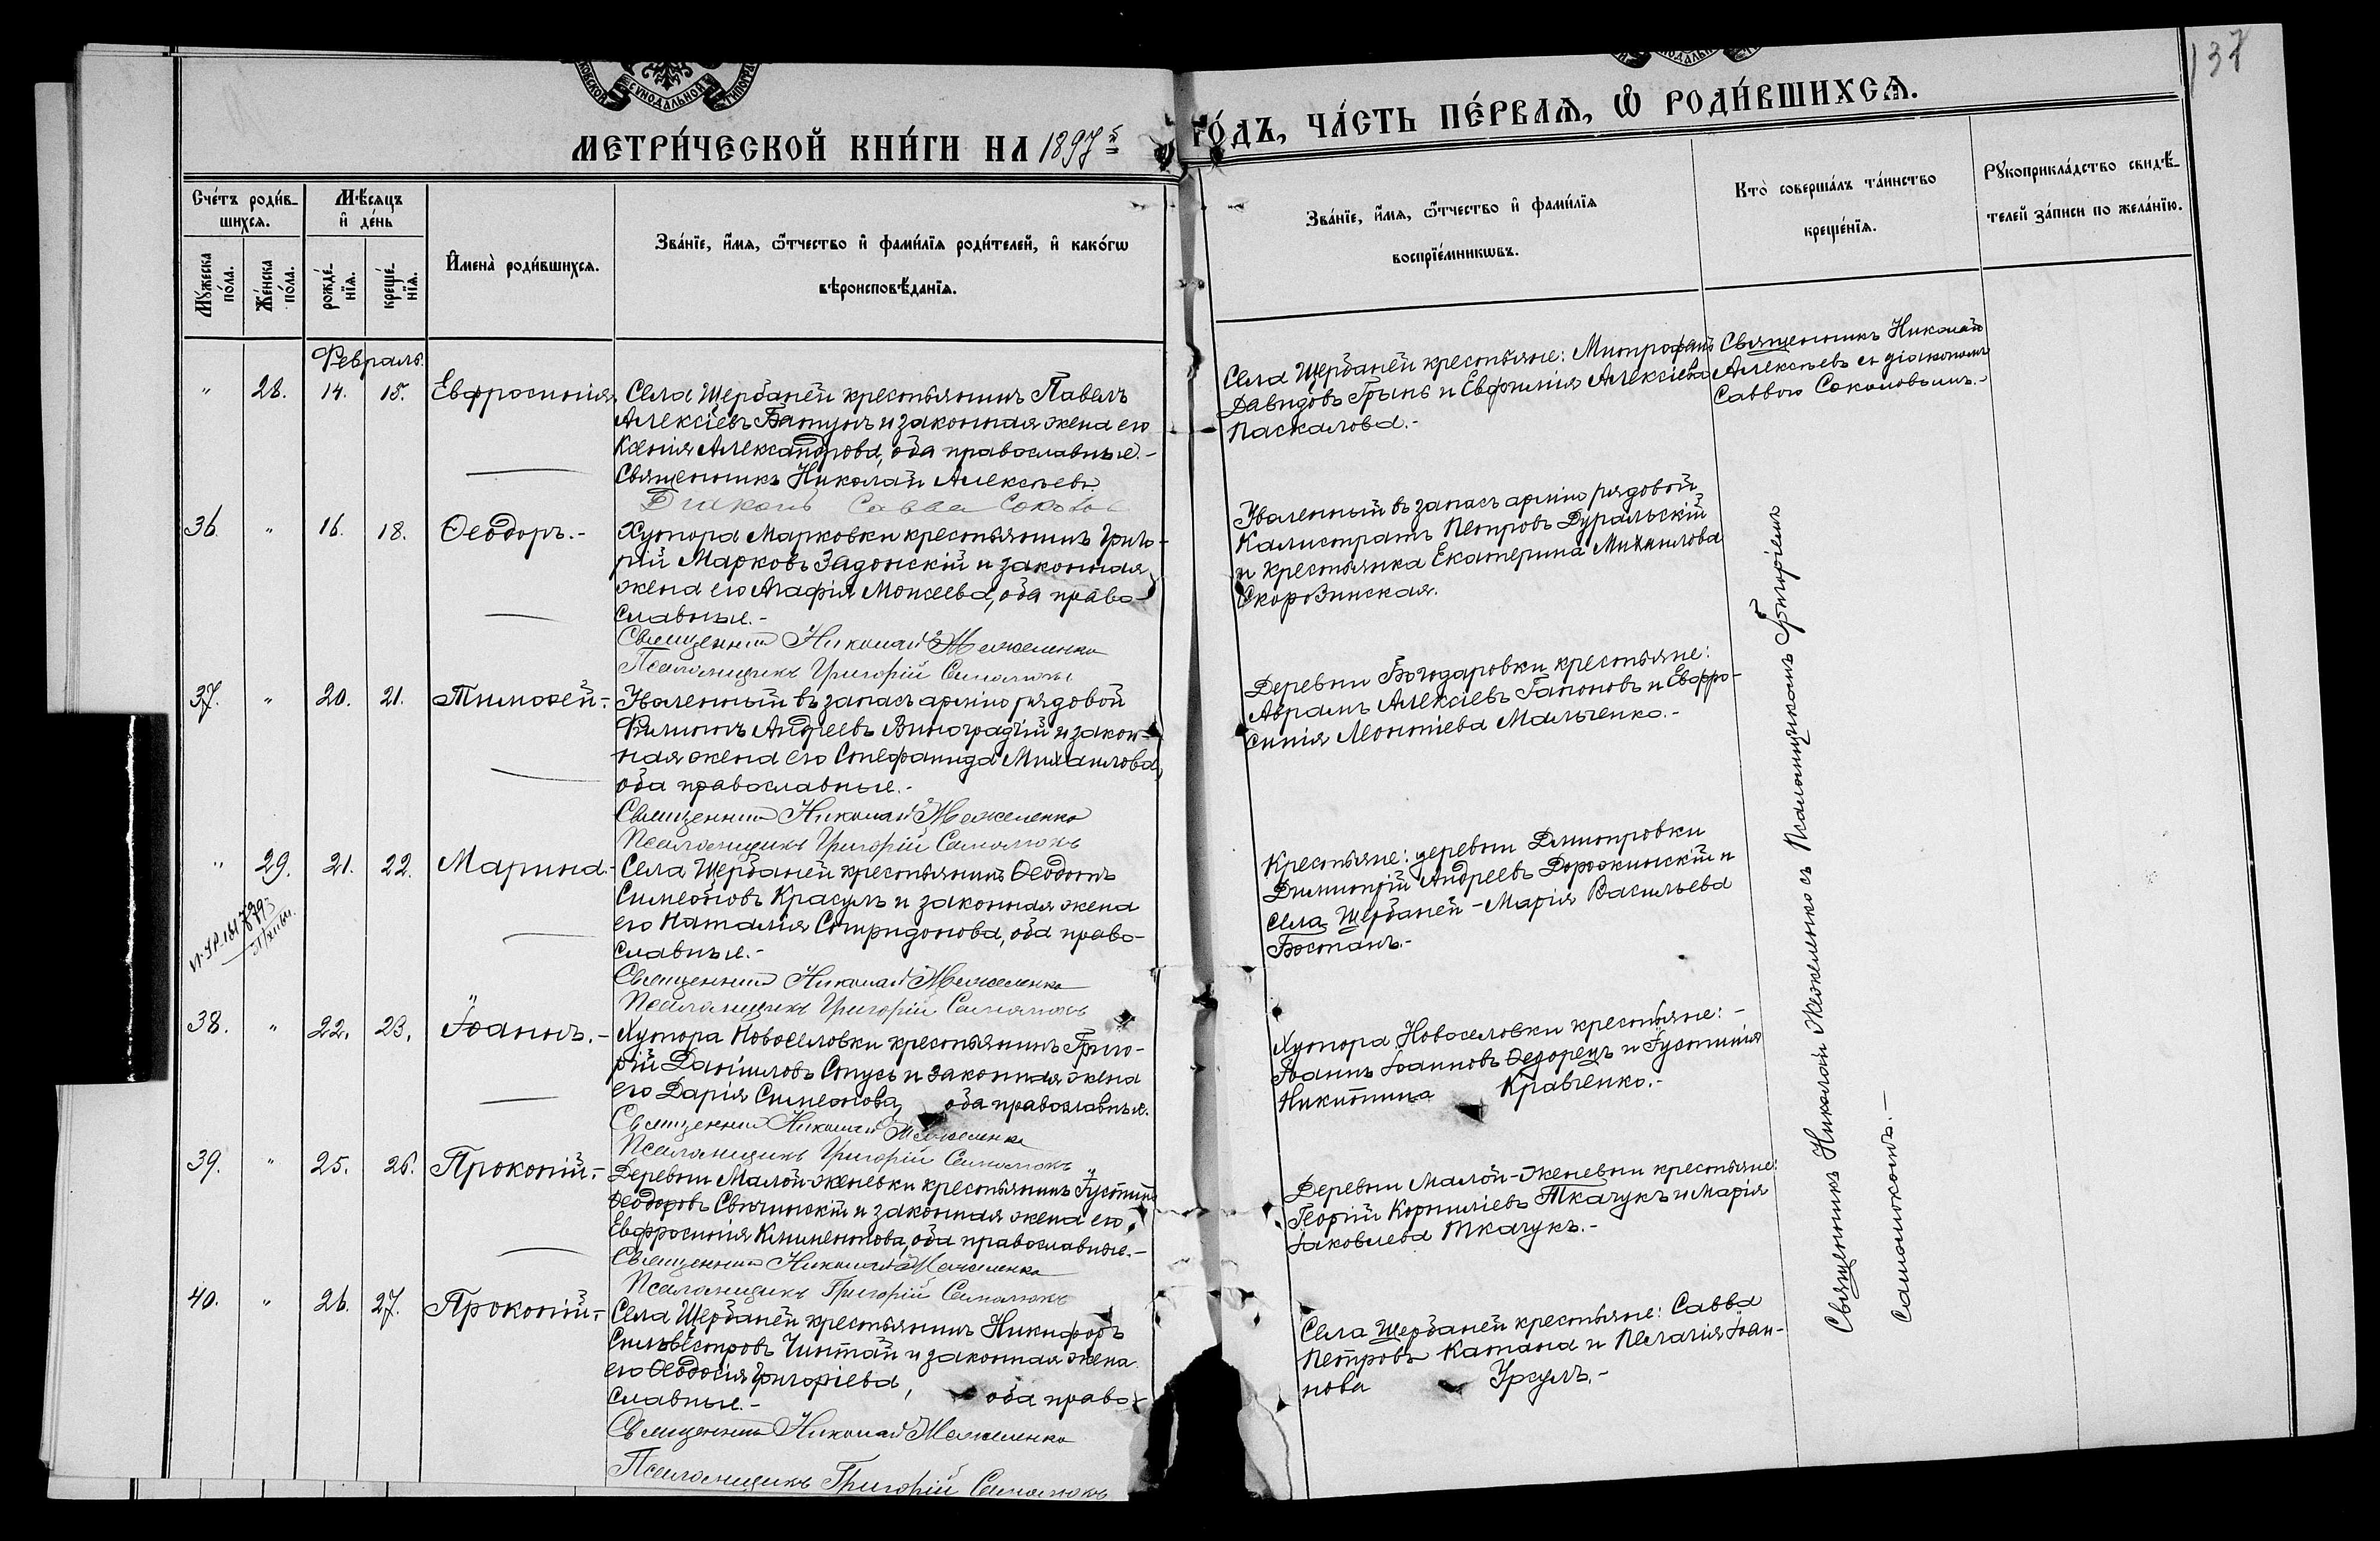 137
МЕТРИ́ЧЕСКОЙ КНИ́ГИ НА 1897й ГО́ДЪ, ЧА́СТЬ ПЕ́РВАѦ, Ѽ РОДИ́ВШИХСѦ.
Сче́тъ роди́в-
шихсѧ.
Мѣ́сяцъ
и҆ де́нь
Му́жеска
по́ла.
Же́нска
по́ла.
рожде́-
нїѧ.
креще́-
нїѧ.
И҆мена̀ роди́вшихсѧ.
Зва́нїе, и҆́мѧ, ѻ҆́тчество и҆ фами́лїѧ роди́телей, и҆ како́гѡ
вѣроисповѣ́данїѧ.
Зва́нїе, и҆́мѧ, ѻ҆́тчество и҆ фами́лїѧ
воспрїе́мникѡвъ.
Кто̀ соверша́лъ та́инство
креще́нїѧ.
Рꙋкоприкла́дство свидѣ́-
телей за́писи по жела́нїю.
Февраль.
" 28. 14. 15. Евфросинія
Села Щербаней крестьянинъ Павелъ
Алексіевъ Батунъ и законная жена его
Ксенія Александрова, оба православные.-
Священникъ Николай Алексѣевъ
Діаконъ Савва Соколов
Села Щербаней крестьяне: Митрофанъ
Давидовъ Грынь и Евфимія Алексіева
Паскалова.-
Священникъ Николай
Алексѣевъ съ діакономъ
Саввою Соколовымъ.-
36. " 16. 18. Ѳеодоръ.-
Хутора Марковки крестьянинъ Григо-
рій Марковъ Задонскій и законная
жена его Агафія Моисеева, оба право-
славные.-
Священникъ Николай Межеленко
Псаломщикъ Григорій Самолюкъ
Уволенный въ запасъ арміи рядовой
Калистратъ Петровъ Дуральскій
и крестьянка Екатерина Михаилова
Скорозинская.
37. " 20. 21. Тимоѳей.-
Уволенный въ запасъ арміи рядовой
Филиппъ Андреевъ Виноградчій и закон-
ная жена его Стефанида Михаилова,
оба православные.-
Священникъ Николай Межеленко
Псаломщикъ Григорій Самолюкъ
Деревни Богодаровки крестьяне:
Аврамъ Алексіевъ Гапоновъ и Евфро-
синія Леонтіева Мальченко.-
" 29. 21. 22. Марина.-
Села Щербаней крестьянинъ Ѳеодотъ
Симеоновъ Красулъ и законная жена
его Наталія Спиридонова, оба право-
славные.-
Священникъ Николай Межеленко
Псаломщикъ Григорій Самолюкъ
Крестьяне: деревни Дмитровки
Димитрій Андреевъ Дорожинскій и
села Щербаней - Марія Васильева
Бостанъ.-
38. " 22. 23. Іоаннъ.-
Хутора Новоселовки крестьянинъ Григо-
рій Даніиловъ Стусь и законная жена
его Дарія Симеонова, оба православные.
Священникъ Николай Межеленко
Псаломщикъ Григорій Самолюкъ
Хутора Новоселовки крестьяне: -
Іоаннъ Іоанновъ Ѳедорецъ и Іустинія
Никитина Кравченко.-
39. " 25. 26. Прокопій.-
Деревни Малой-Женевки крестьянинъ Іустинъ
Ѳеодоровъ Свѣчинскій и законная жена его
Евфросинія Климентова, оба православные.-
Священникъ Николай Межеленко
Псаломщикъ Григорій Самолюкъ
Деревни Малой-Женевки крестьяне:
Георгій Корниліевъ Ткачукъ и Марія
Іаковлева Ткачукъ.-
40. " 26. 27. Прокопій.-
Села Щербаней крестьянинъ Никифоръ
Сильвестровъ Чинтай и законная жена
его Ѳеодосія Григоріева, оба право-
славные.-
Священникъ Николай Межеленко
Псаломщикъ Григорій Самолюкъ
Села Щербаней крестьяне: Савва
Петровъ Катана и Пелагія Іоан-
нова Урсулъ.-
Священникъ Николай Межеленко съ Псаломщикомъ Григоріемъ
Самолюкомъ.-